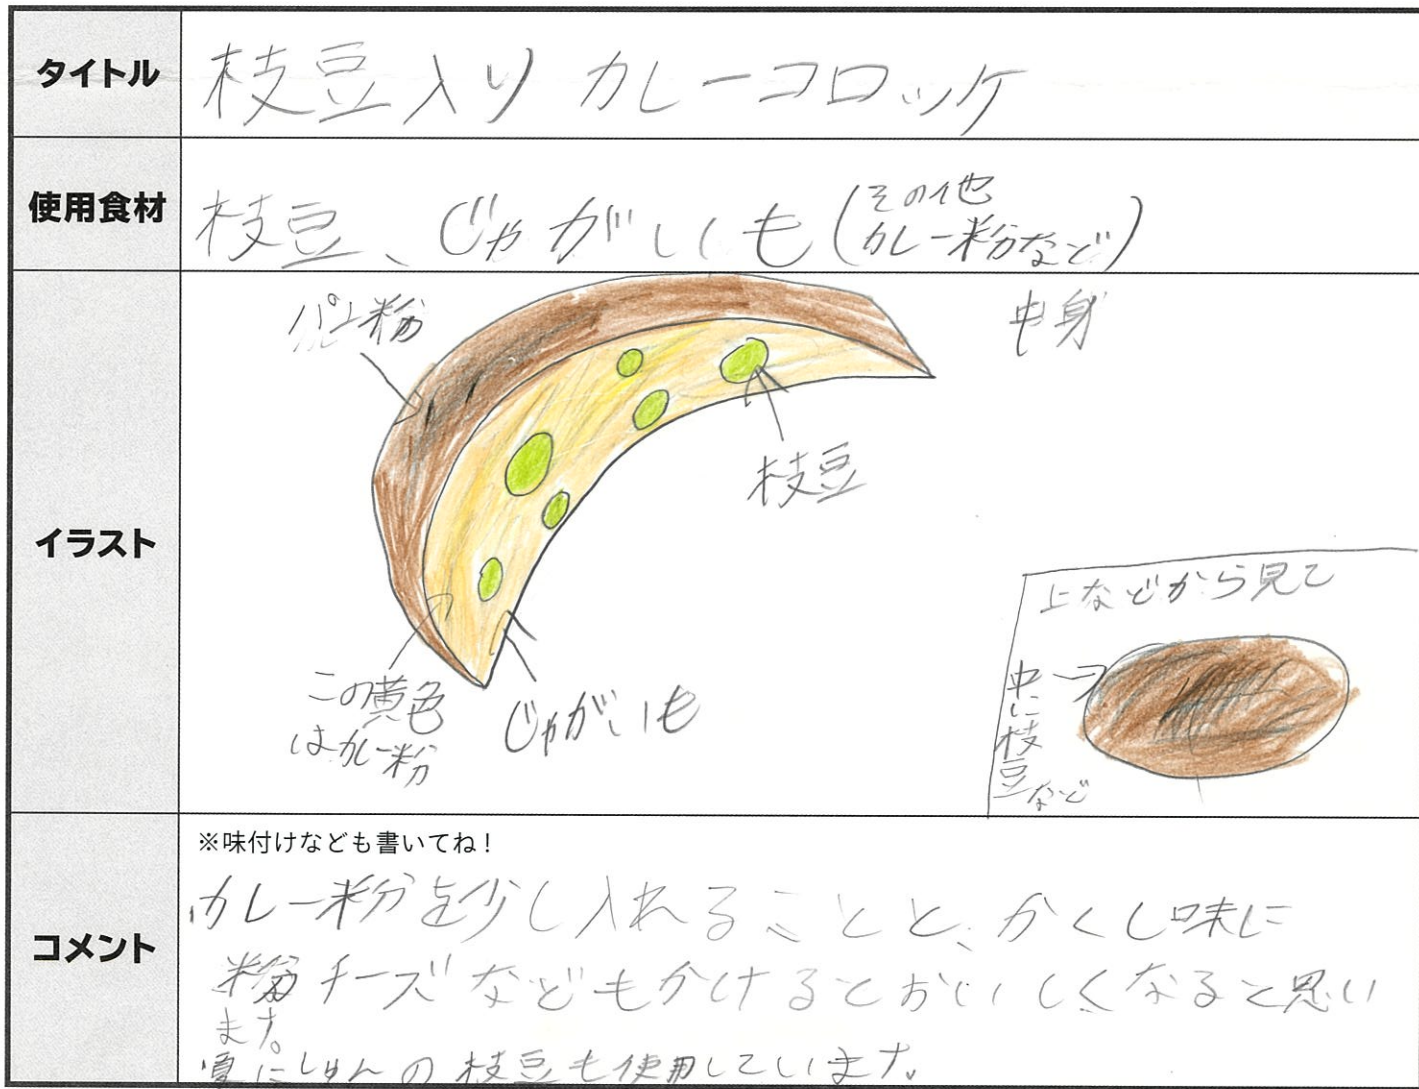 タイトル
枝豆入り カレーコロッケ
使用食材
枝豆、じゃがいも(その他
カレー粉など)
イラスト
パン粉
中身
枝豆
この黄色
はカレー粉
じゃがいも
上などから見て
中に枝豆など
コメント
※味付けなども書いてね!
カレー粉を少し入れることと、かくし味に
粉チーズなどもかけるとおいしくなると思い
ます。
夏にしゅんの枝豆も使用しています。